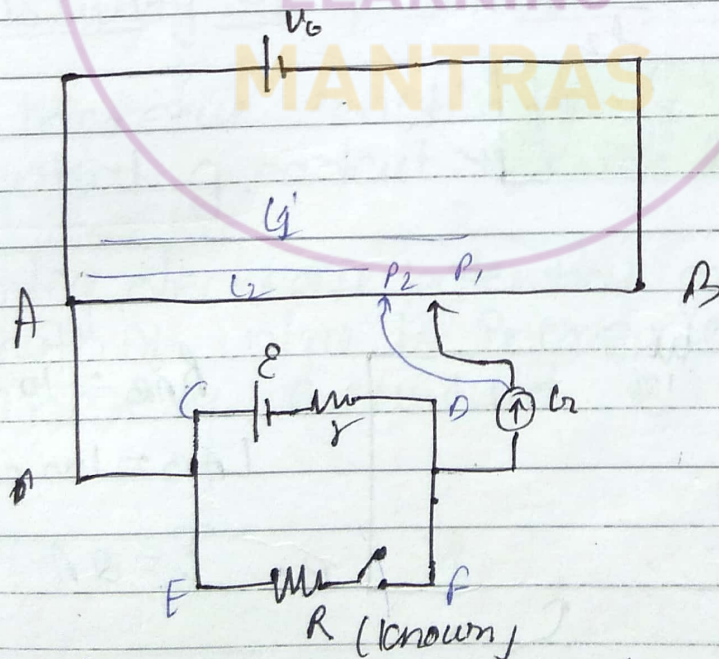 LEARNING
V₀
MANTRAS
L₁
L₂ P₂ P₁
A B
ε
C D G
r
E F
R (known)